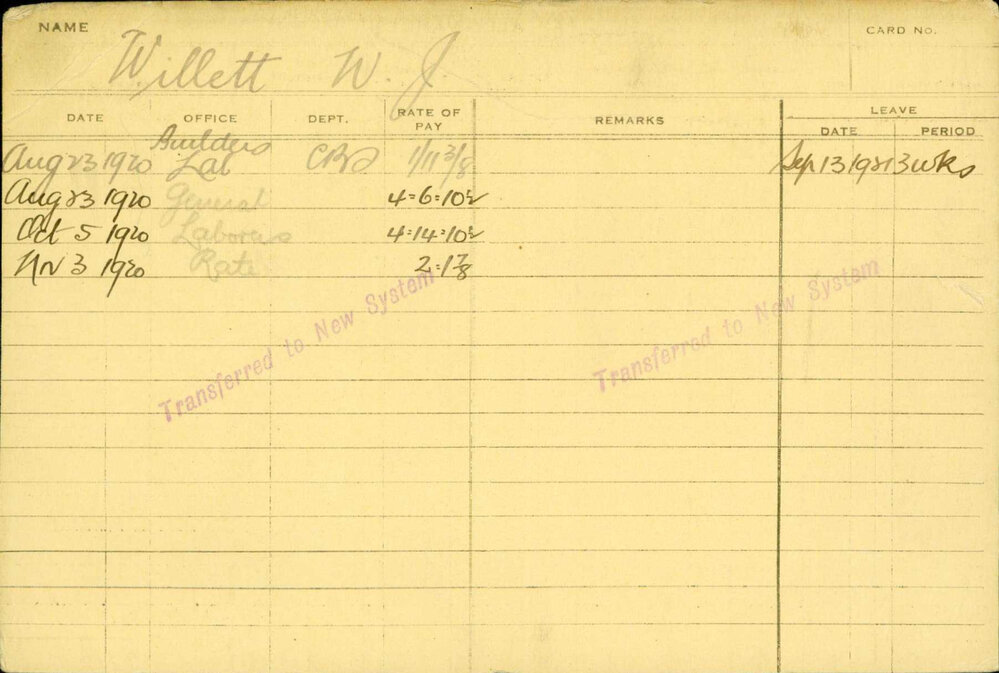 NAME CARD NO.
Willett W. J.
DATE OFFICE DEPT. RATE OF PAY REMARKS LEAVE
DATE PERIOD
Aug 23 1920 Builders Lab 1/11 3/8 Sep 13 1921 3 wks
Aug 23 1920 General 4=6=10½
Oct 5 1920 Laborers 4=14=10½
Nov 3 1920 Rate 2=1 7/8
Transferred to New System
Transferred to New System